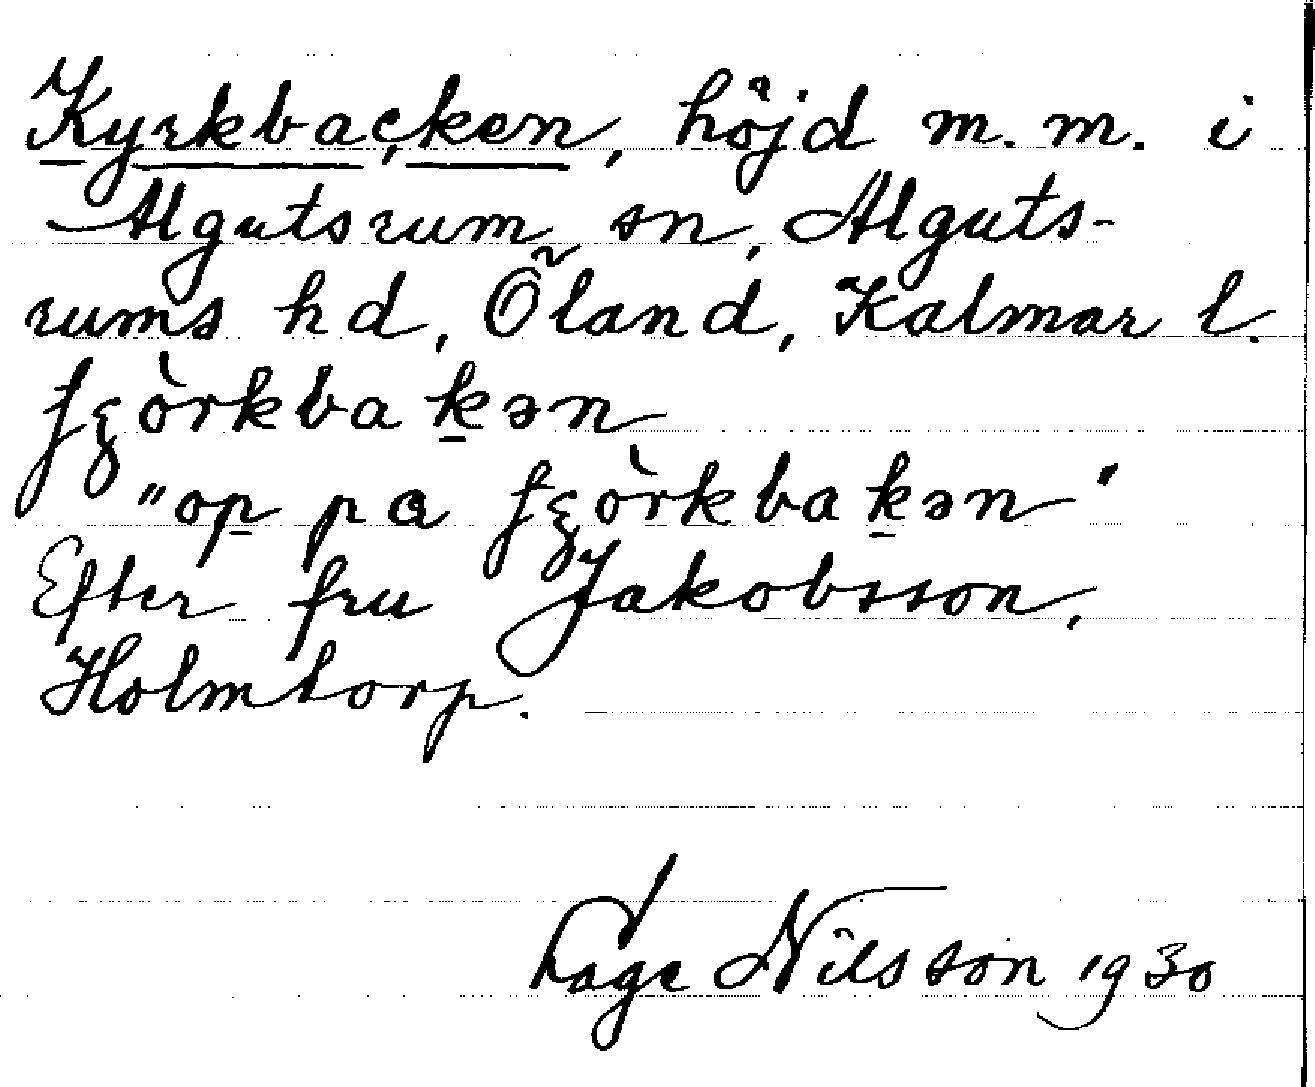 Kyrkbacken, höjd m.m. i
Algutsrum sn, Alguts-
rums hd, Öland, Kalmar l.
ʃʒòrkbaḵən
"op̱ pɑ ʃʒòrkbaḵən"
Efter fru Jakobsson,
Holmtorp.
Lage Nilsson 1930